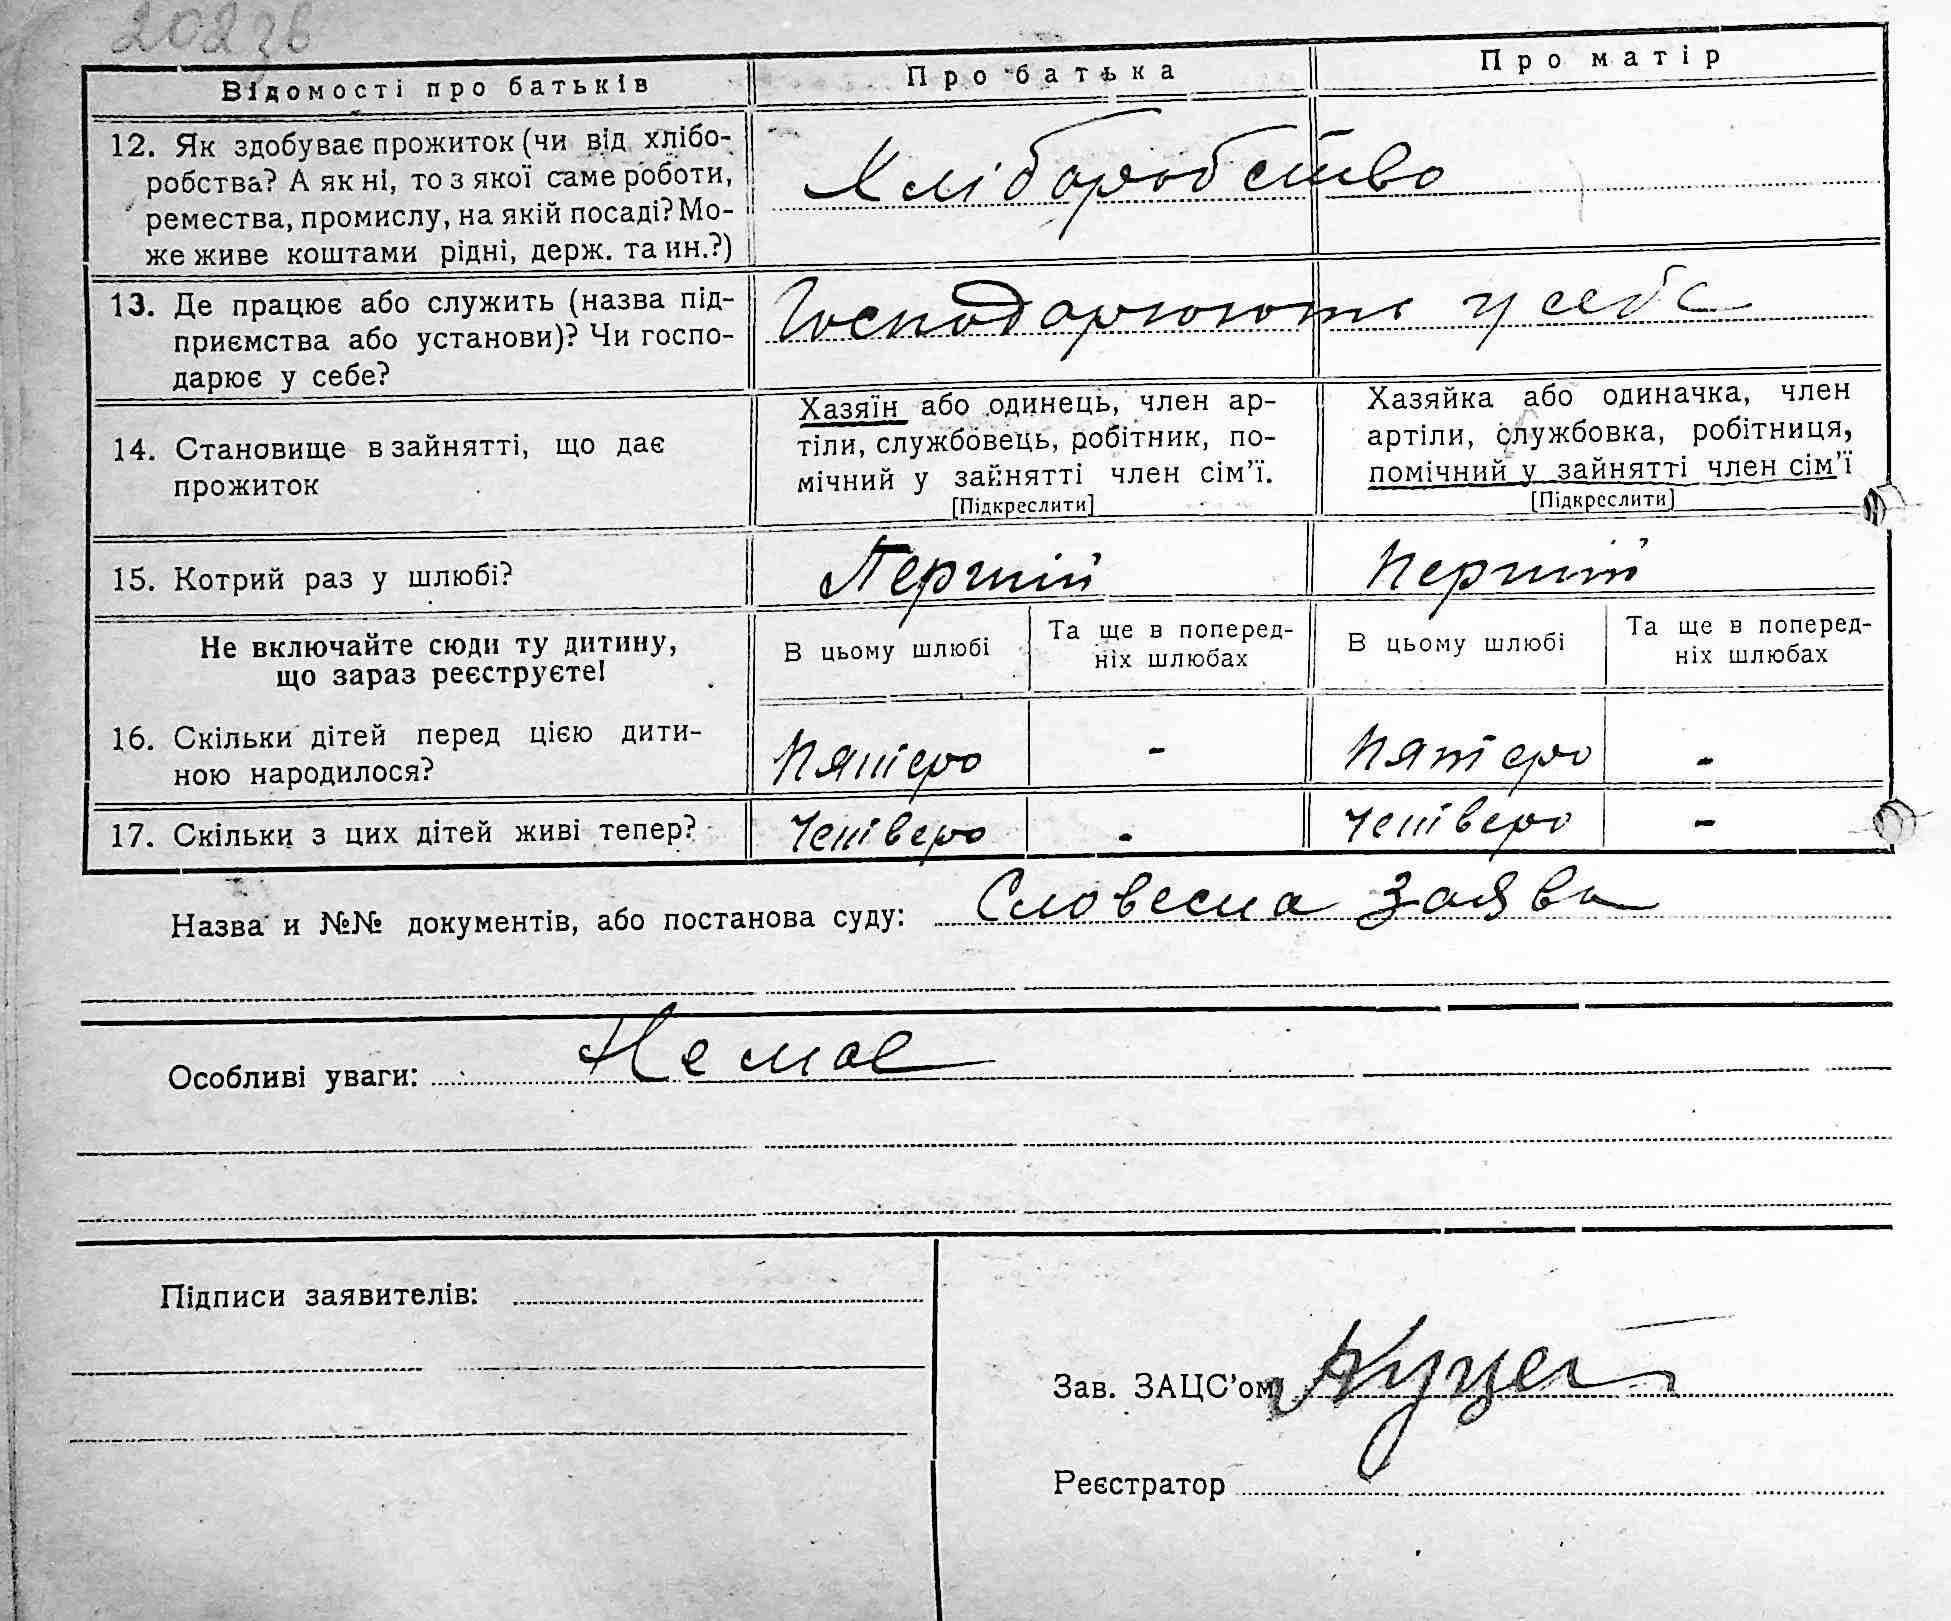 202 зв
Відомості про батьків
Про батька
Про матір
12. Як здобуває прожиток (чи від хлібо-
робства? А як ні, то з якої саме роботи,
ремества, промислу, на якій посаді? Мо-
же живе коштами рідні, держ. та ин.?)
Хліборобство
13. Де працює або служить (назва під-
приємства або установи)? Чи госпо-
дарює у себе?
Господарюють у себе
14. Становище в зайнятті, що дає
прожиток
Хазяїн або одинець, член ар-
тіли, службовець, робітник, по-
мічний у зайнятті член сім’ї.
[Підкреслити]
Хазяйка або одиначка, член
артіли, службовка, робітниця,
помічний у зайнятті член сім’ї
[Підкреслити]
15. Котрий раз у шлюбі?
Перший
Перший
Не включайте сюди ту дитину,
що зараз реєструєте!
В цьому шлюбі
Та ще в поперед-
ніх шлюбах
В цьому шлюбі
Та ще в поперед-
ніх шлюбах
16. Скільки дітей перед цією дити-
ною народилося?
Пятеро
-
Пятеро
-
17. Скільки з цих дітей живі тепер?
Четверо
-
Четверо
-
Назва и №№ документів, або постанова суду: Словесна заява
Особливі уваги: Немає
Підписи заявителів:
Зав. ЗАЦС’ом
Реєстратор